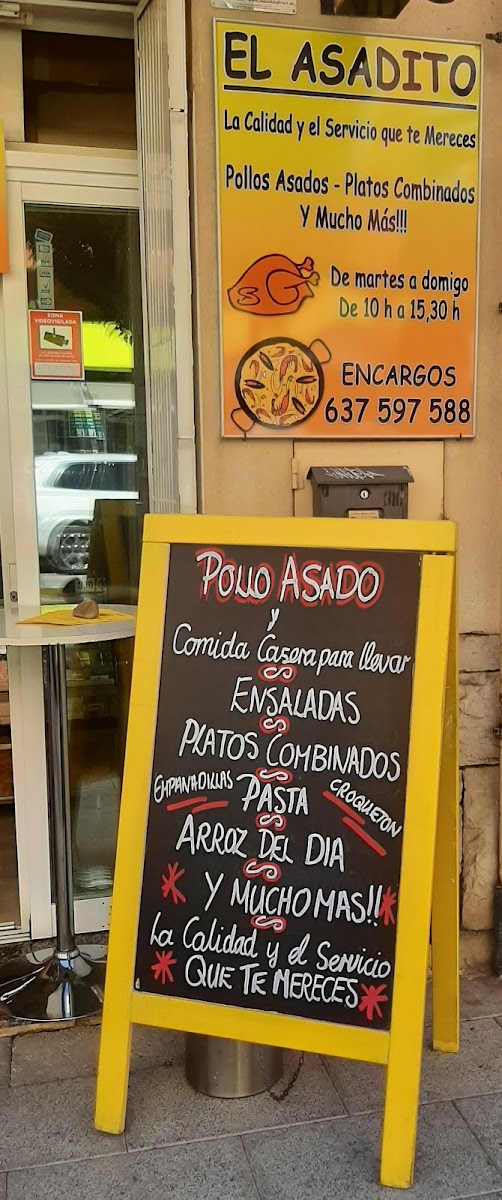 EL ASADITO
La Calidad y el Servicio que te Mereces
Pollos Asados - Platos Combinados
Y Mucho Más!!!
De martes a domigo
De 10 h a 15,30 h
ENCARGOS
637 597 588
ZONA
VIDEOVIGILADA
POLLO ASADO
y
Comida Casera para llevar
ENSALADAS
PLATOS COMBINADOS
EMPANADILLAS
PASTA
CROQUETON
ARROZ DEL DIA
Y MUCHO MAS!!
La Calidad y el Servicio
QUE TE MERECES